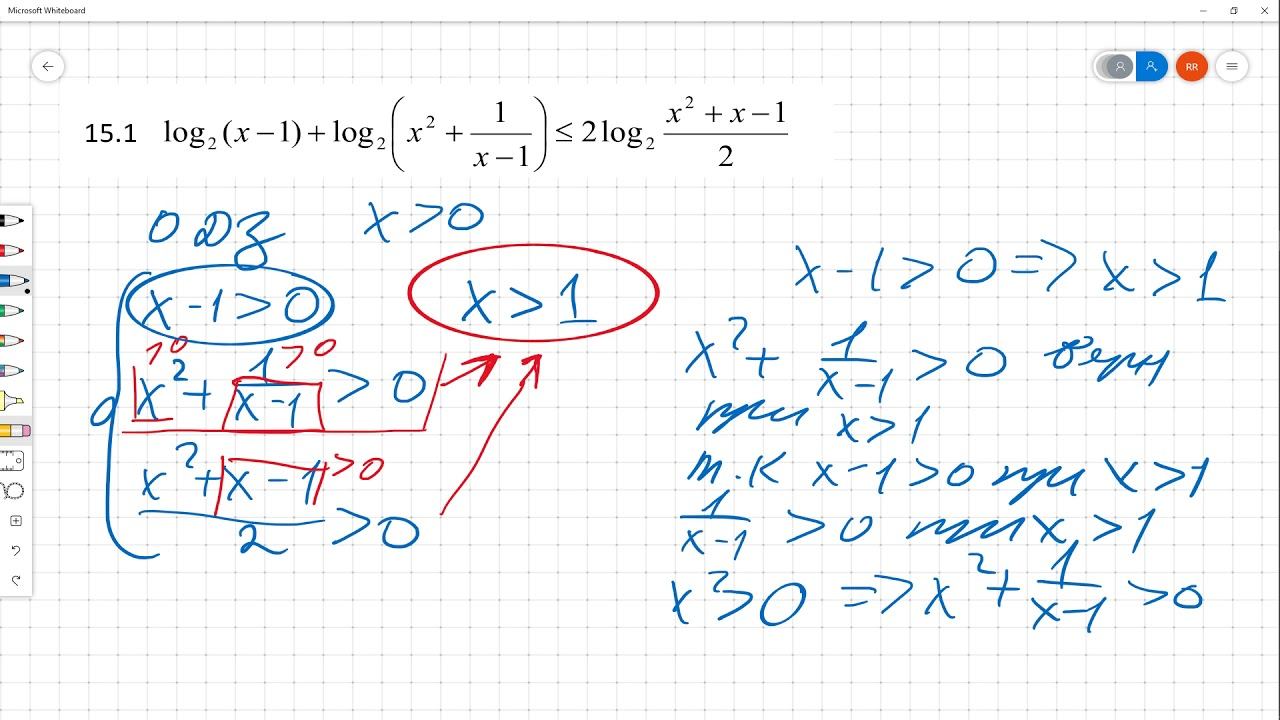 Microsoft Whiteboard
RR
15.1 log₂(x−1)+log₂(x² + 1/(x−1)) ≤ 2log₂ (x² + x −1)/2
ОДЗ x>0
x-1>0 x>1
>0 >0
x² + 1/(x-1) > 0
x² + x - 1 >0
/2 >0
x-1>0 => x>1
x² + 1/(x-1) > 0 верн
при x>1
т.к x-1>0 при x>1
1/(x-1) >0 при x>1
x²>0 => x² + 1/(x-1) >0